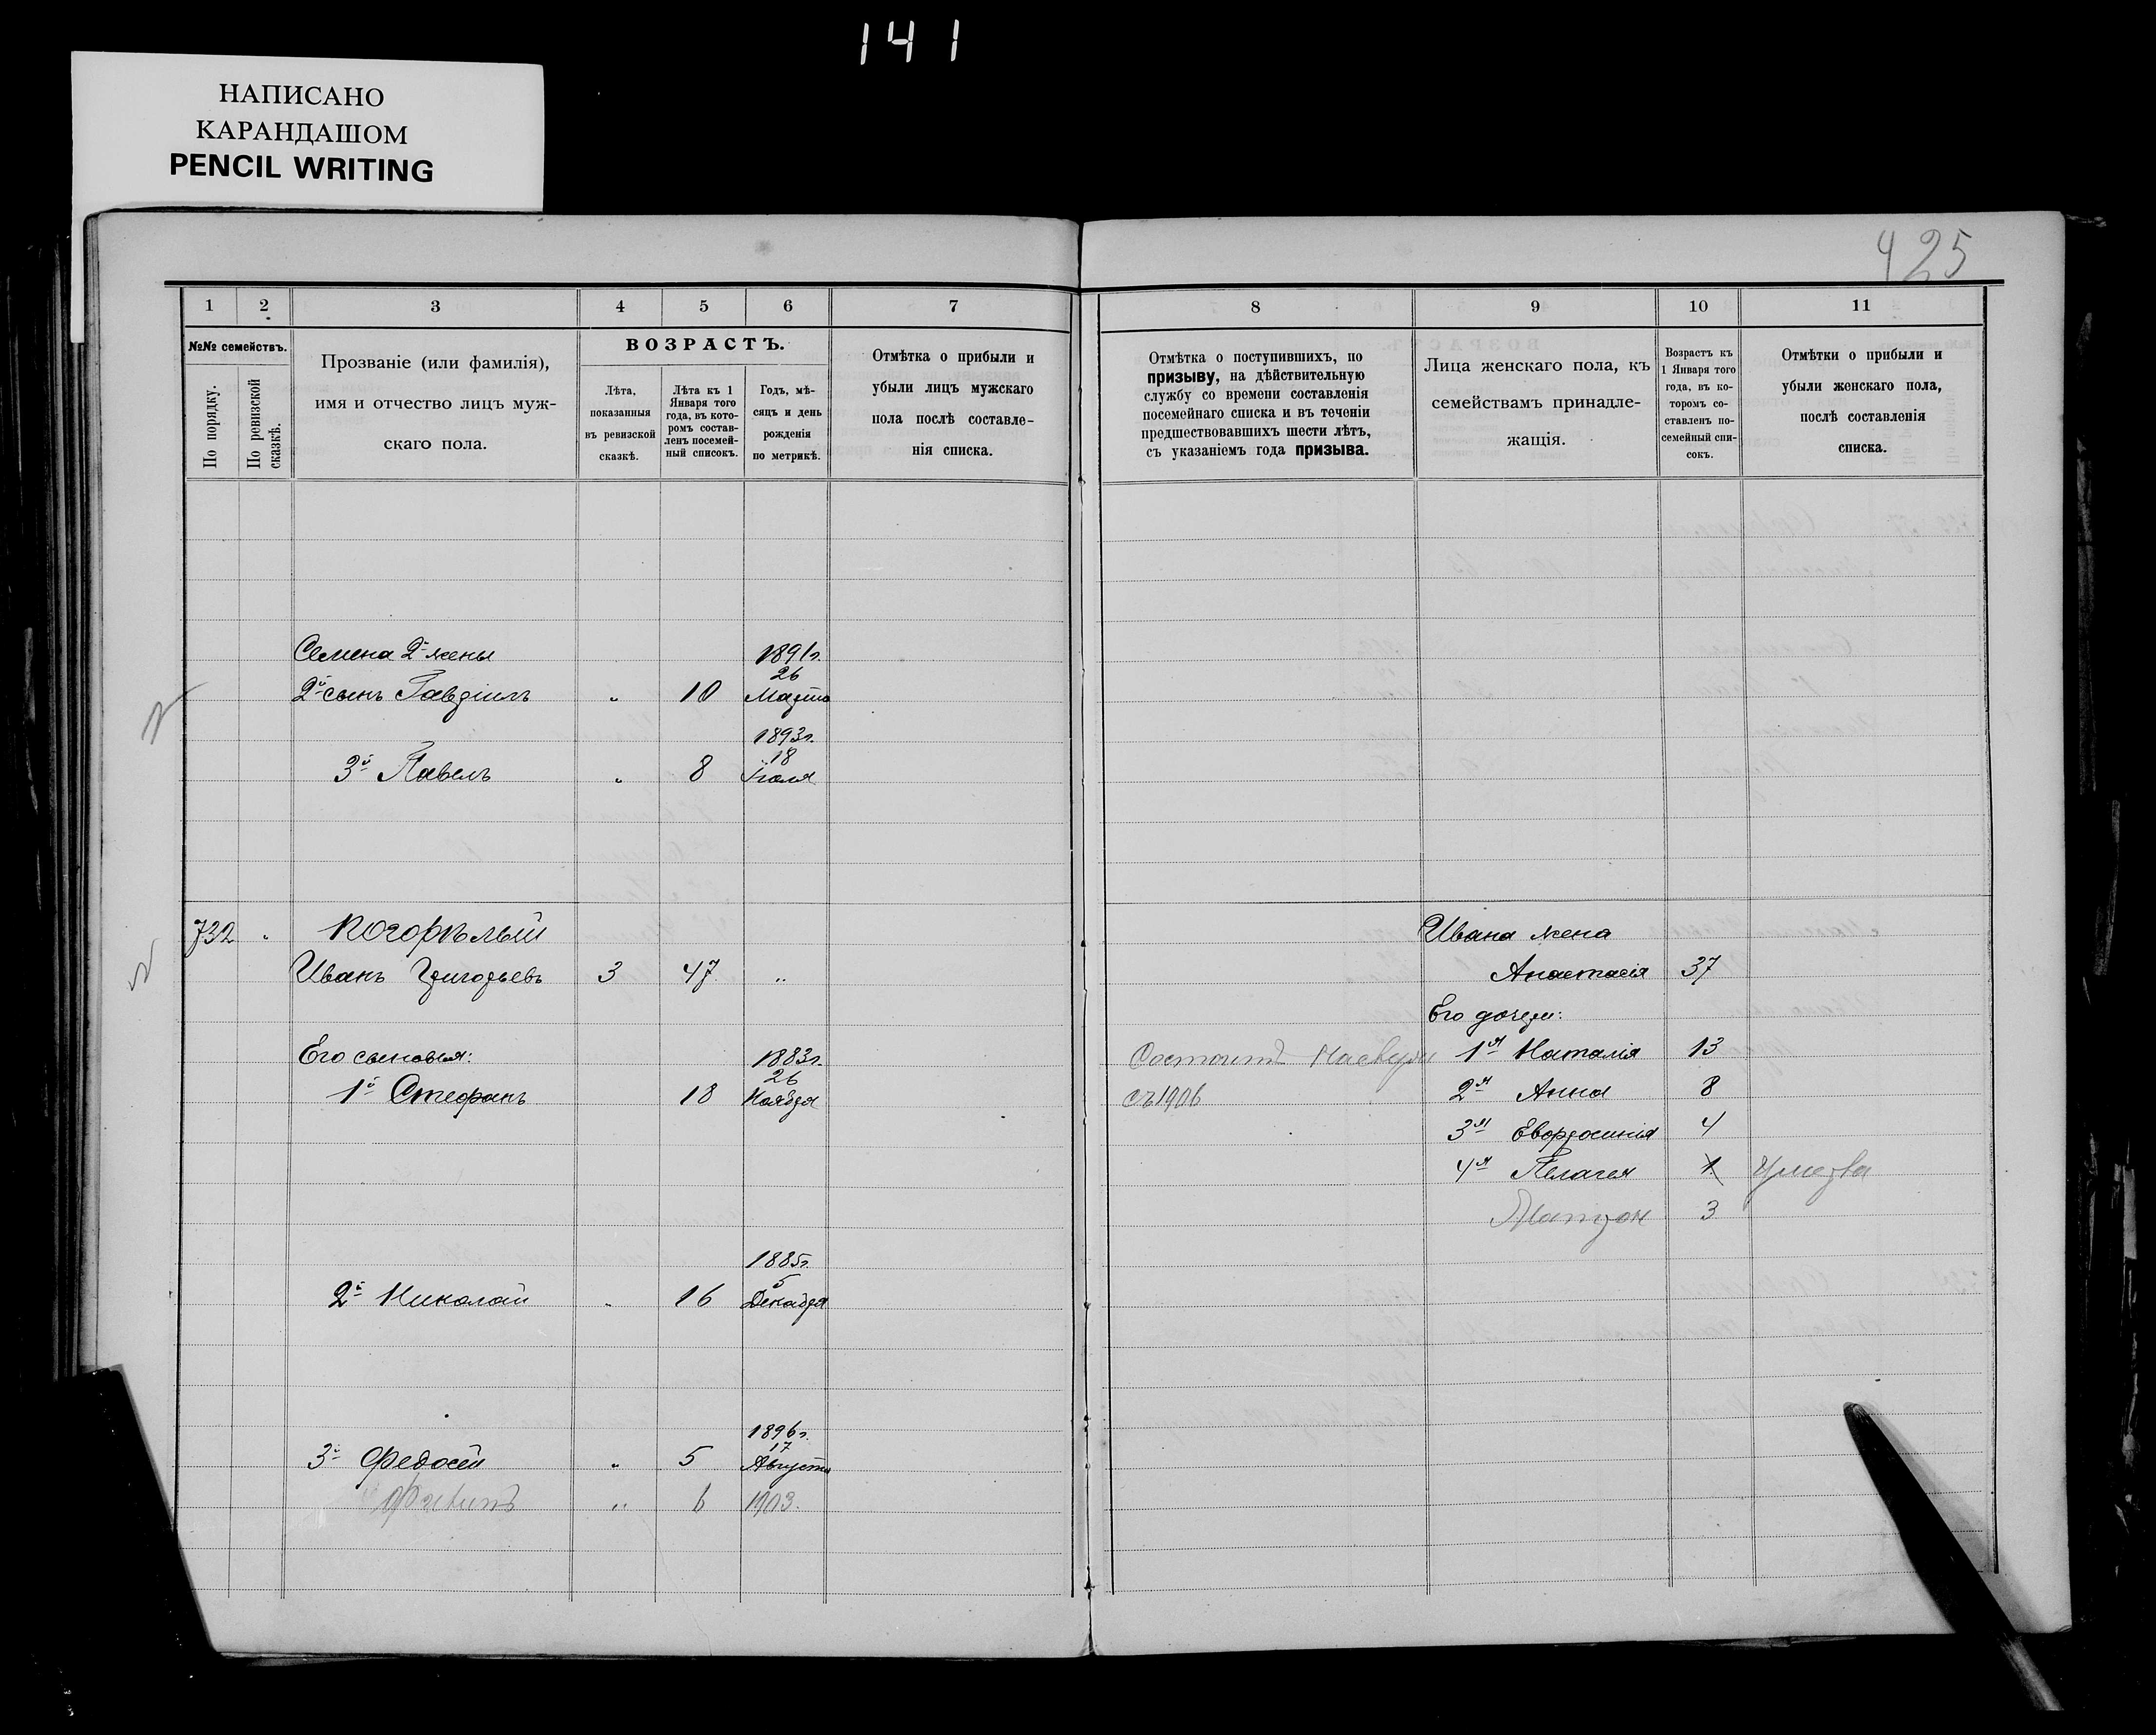 141
НАПИСАНО
КАРАНДАШОМ
PENCIL WRITING
425
1 2 3 4 5 6 7
8 9 10 11
№№ семействъ.
По порядку.
По ревизской сказкѣ.
Прозваніе (или фамилія),
имя и отчество лицъ муж-
скаго пола.
ВОЗРАСТЪ.
Лѣта,
показанныя
въ ревизской
сказкѣ.
Лѣта къ 1
Января того
года, въ кото-
ромъ состав-
ленъ посемей-
ный списокъ.
Годъ, мѣ-
сяцъ и день
рожденія
по метрикѣ.
Отмѣтка о прибыли и
убыли лицъ мужскаго
пола послѣ составле-
нія списка.
Отмѣтка о поступившихъ, по
призыву, на дѣйствительную
службу со времени составленія
посемейнаго списка и въ теченіи
предшествовавшихъ шести лѣтъ,
съ указаніемъ года призыва.
Лица женскаго пола, къ
семействамъ принадле-
жащія.
Возрастъ къ
1 Января того
года, въ ко-
торомъ со-
ставленъ по-
семейный спи-
сокъ.
Отмѣтки о прибыли и
убыли женскаго пола,
послѣ составленія
списка.
Семена 2й жены 1891г.
26
2й сынъ Гавріилъ " 10 Марта
1893г.
18
3й Павелъ " 8 Іюля
732 " Когорѣлый
Иванъ Григорьевъ 3 47 "
Его сыновья: 1883г.
26
1й Стефанъ 18 Ноября
1885г.
5
2й Николай " 16 Декабря
1896г.
17
3й Федосій " 5 Августа
" 6 1903.
Состоитъ
съ 1906
Ивана жена
Анастасія 37
Его дочери:
1я Наталія 13
2я Анна 8
3я Евфросинія 4
4я Пелагея 1 Умерла
Матрон 3